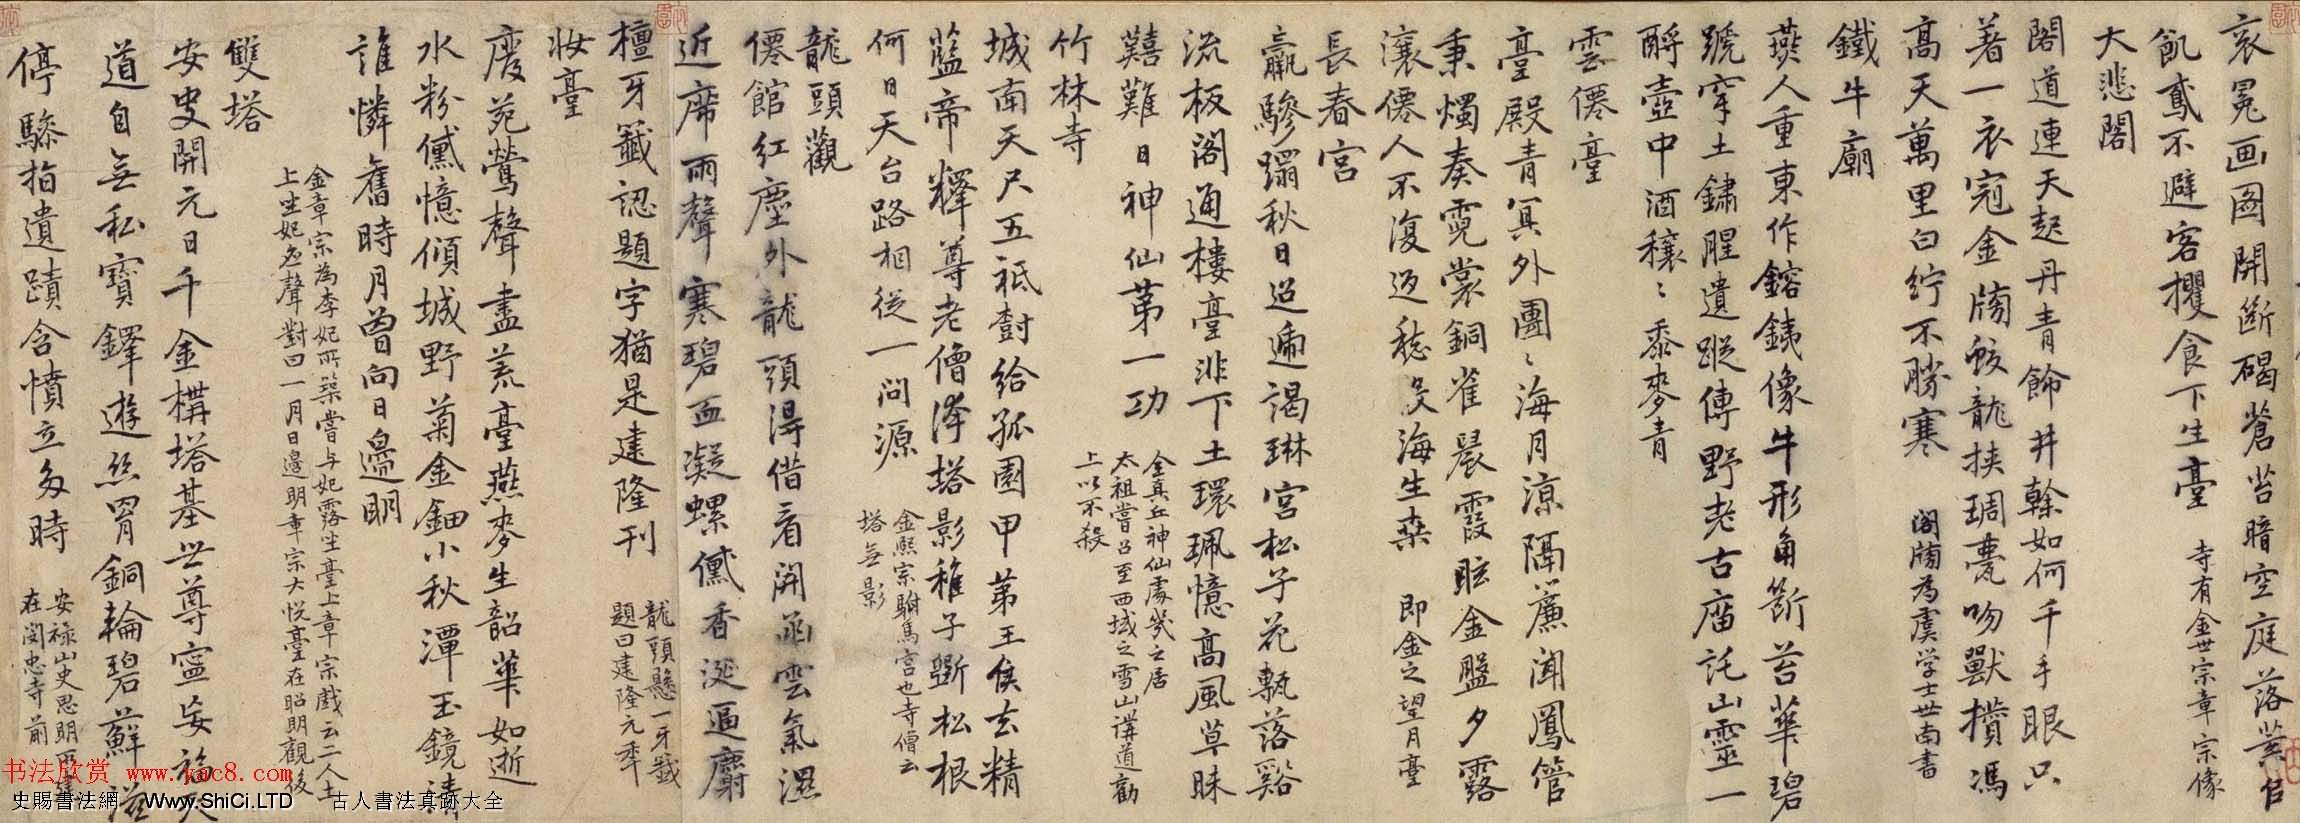 袞冕画圖開斷碣蒼苔暗空庭落葉
飢鳶不避客攫食下生臺 寺有金世宗章宗像
大悲閣
閣道連天起丹青飾井榦如何千手眼只
著一衣冠金牓蛟龍挾琱甍吻獸攢馮
高天萬里白紵不勝寒 閣牓為虞学士世南書
鐵牛廟
燕人重東作鎔銕像牛形角斷苔華碧
蹏穿土鏽腥遺蹤傳野老古廟託山靈一
酹壺中酒穰〻黍麥青
雲僊臺
臺殿青冥外團〻海月凉隔簾聞鳳管
秉燭奏霓裳銅雀晨霞眩金盤夕露
瀼僊人不復返 海生桑 即金之望月臺
長春宮
羸驂躡秋日迢遞謁琳宮松子花甎落谿
流板閣通樓臺非下土環珮憶高風草昧
囏難日神仙第一功 全真丘神仙處幾之居
太祖嘗召至西域之雪山講道勸
上以不殺
竹林寺
城南天尺五祇樹給孤園甲第王侯去精
藍帝釋尊老僧降塔影稚子斲松根
何日天台路相從一問源 金熙宗駙馬宮也寺僧云
塔無影
龍頭觀
僊館紅塵外龍頭得借看開函雲氣濕
近席雨聲寒碧血凝螺 香涎逼麝
檀牙籤認題字猶是建隆刊 龍頭懸一牙籤
題曰建隆元年
妝臺
廢苑鶯聲盡荒臺燕麥生韶華如逝
水粉黛憶傾城野菊金鈿小秋潭玉鏡清
誰憐舊時月曾向日邊明
金章宗為李妃所築嘗与妃露坐臺上章宗戲云二人土
上坐妃應聲對曰一月日邊明章宗大悅臺在昭明觀後
雙塔
安史開元日千金構塔基世尊寧妄福天
道自無私寶鐸遊絲罥銅輪碧蘚滋
停驂指遺蹟含憤立多時 安祿山史思明所建
在閔忠寺前
书法欣赏 www.yac8.com
史賜書法網 Www.ShiCi.LTD 古人書法真跡大全